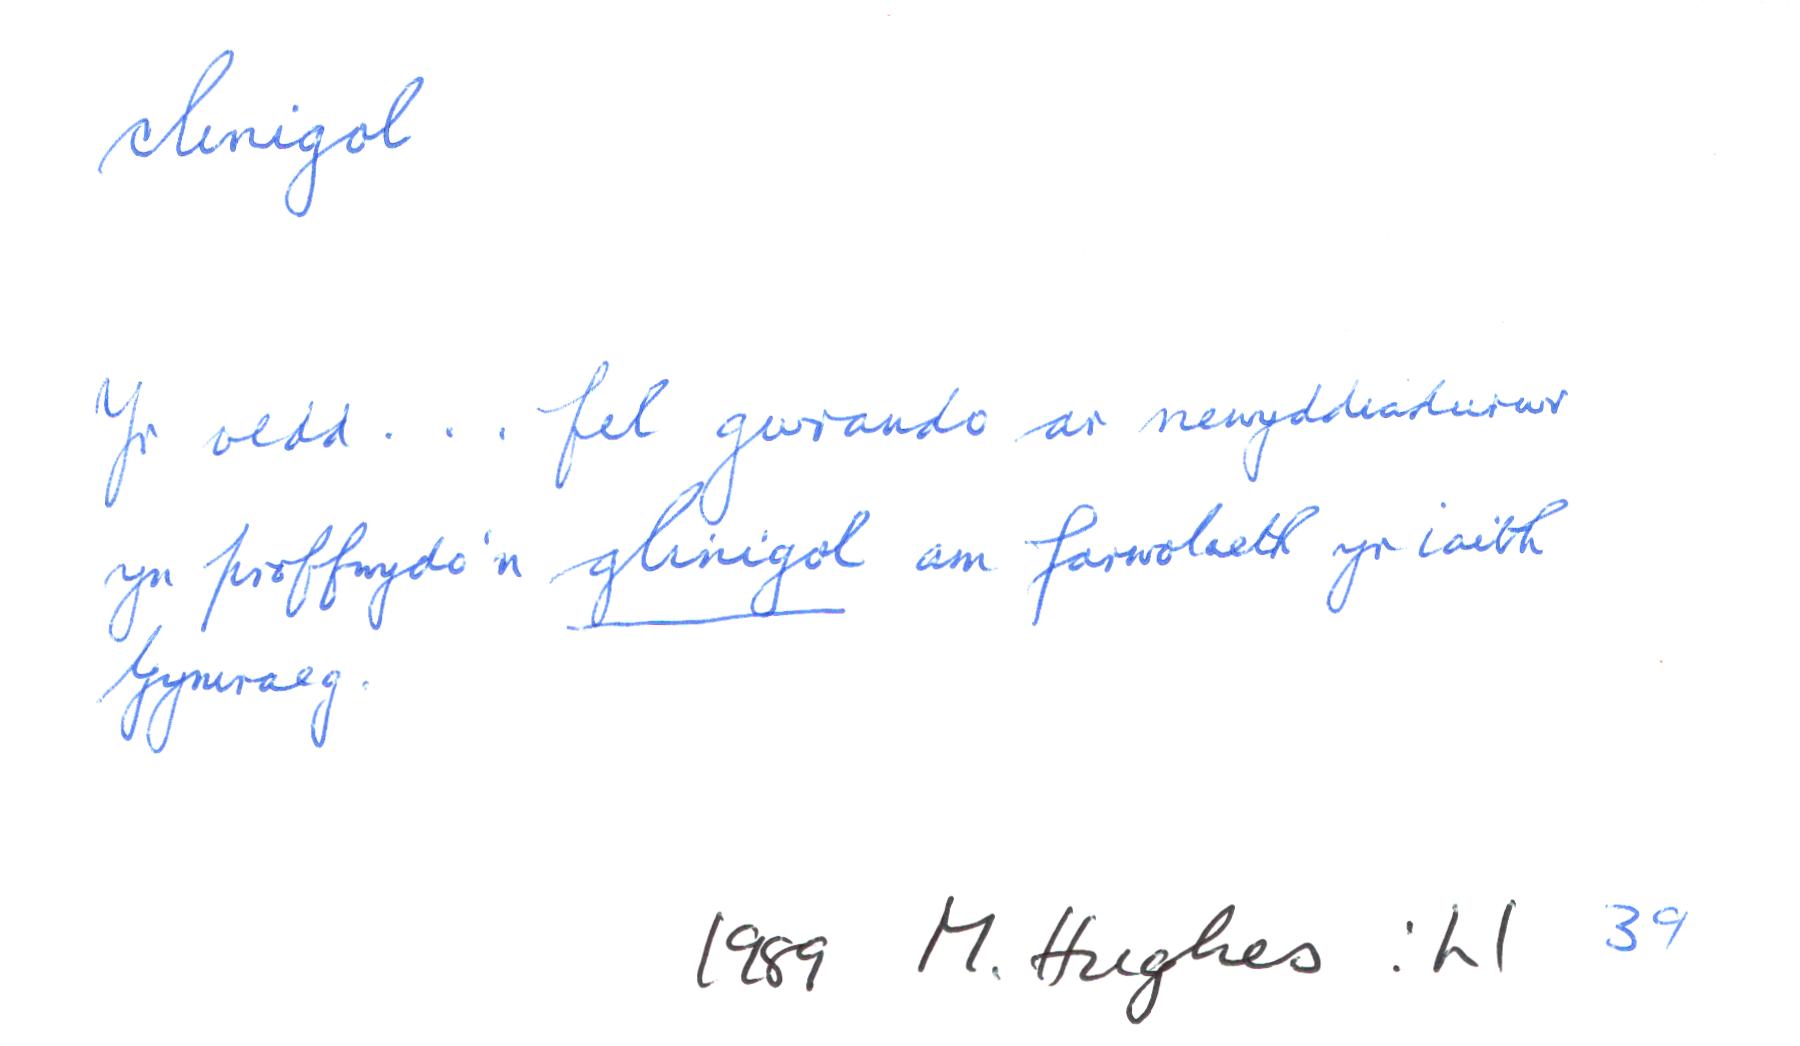 clinigol
Yr oedd . . . fel gwrando ar newyddiadurwr
yn proffwydo'n glinigol am farwolaeth yr iaith
Gymraeg.
1989 M. Hughes : Ll 39